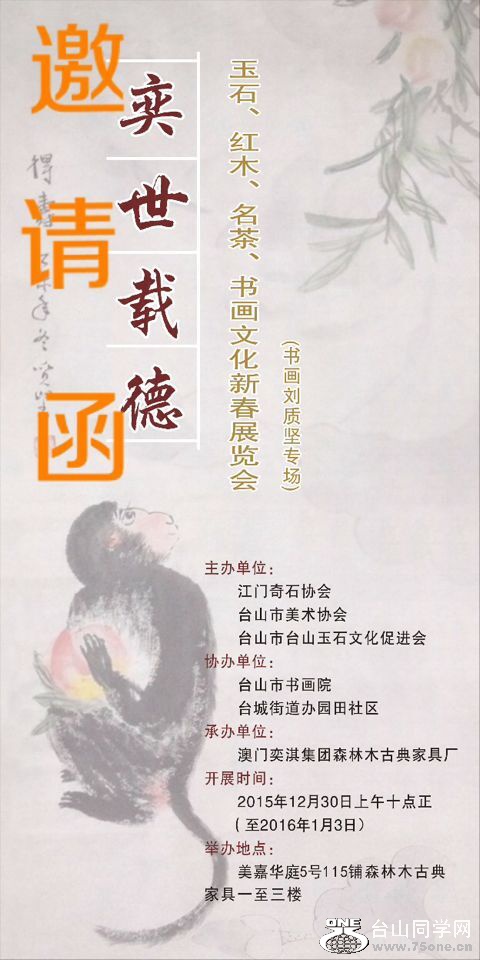 邀请函
奕世载德
玉石、红木、名茶、书画文化新春展览会
(书画刘质坚专场)
主办单位：
江门奇石协会
台山市美术协会
台山市台山玉石文化促进会
协办单位：
台山市书画院
台城街道办园田社区
承办单位：
澳门奕淇集团森林木古典家具厂
开展时间：
2015年12月30日上午十点正
（至2016年1月3日）
举办地点：
美嘉华庭5号115铺森林木古典
家具一至三楼
ONE
台山同学网
www.75one.com